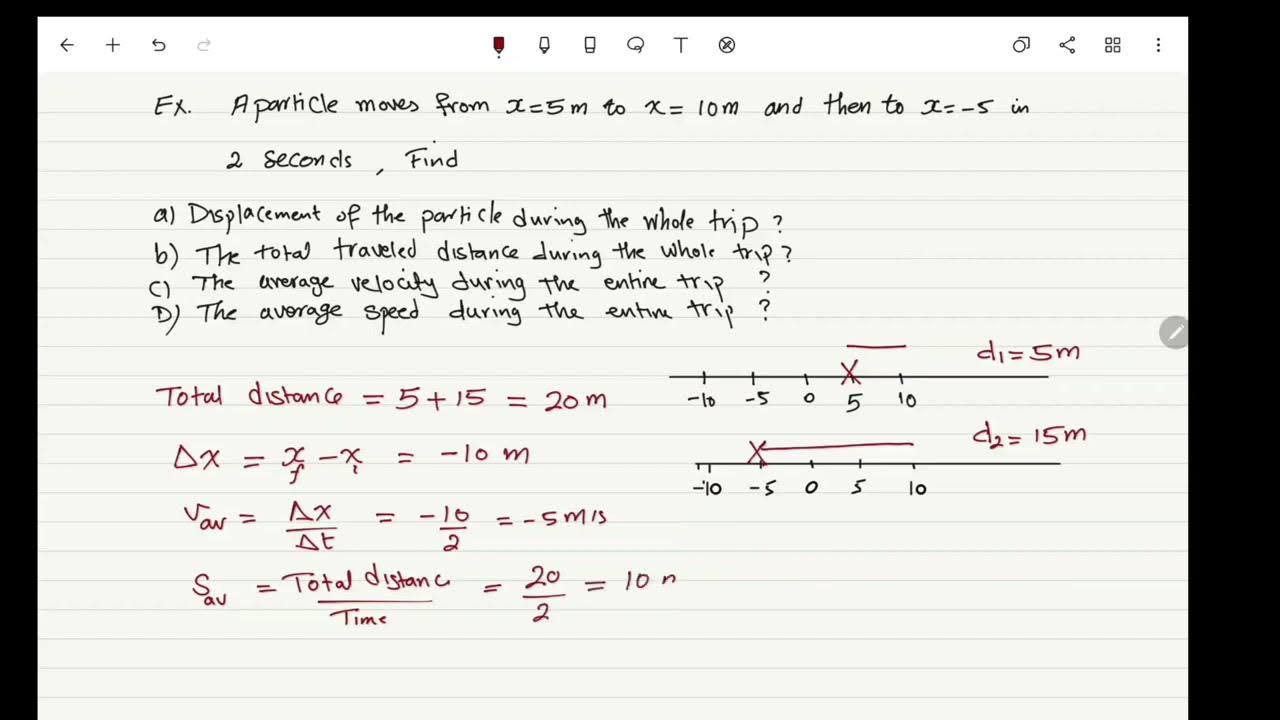 Ex. A particle moves from x=5m to x= 10m and then to x=-5 in
2 seconds, Find
a) Displacement of the particle during the whole trip?
b) The total traveled distance during the whole trip?
C) The average velocity during the entire trip ?
D) The average speed during the entire trip ?
d1=5m
-10 -5 0 5 10
Total distance = 5+15 = 20m
d2= 15m
-10 -5 0 5 10
Δx = xf - xi = -10 m
Vav = Δx/Δt = -10/2 = -5m/s
Sav = Total distance/Time = 20/2 = 10
T